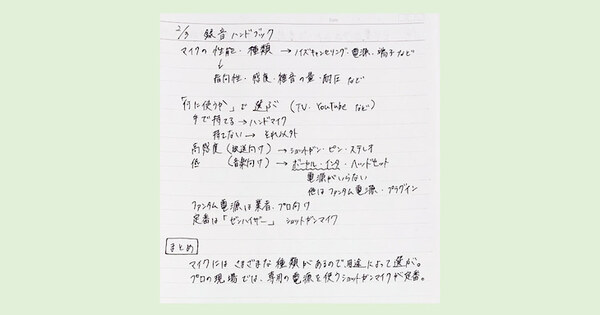 2/3 録音ハンドブック
マイクの性能・種類 → ノイズキャンセリング・電源・端子など
↓
指向性・感度・雑音の量・耐圧 など
「何に使うか」で選ぶ (TV、YouTube など)
手で持てる → ハンドマイク
持てない → それ以外
高感度 (放送向け) → ショットガン・ピン・ステレオ
低 (音楽向け) → ボーカル・インタ・ヘッドセット
電源がいらない
他はファンタム電源・プラグイン
ファンタム電源は業者、プロ向け
定番は「ゼンハイザー」 ショットガンマイク
まとめ
マイクにはさまざまな種類があるので用途によって選ぶ。
プロの現場では、専用の電源を使うショットガンマイクが定番。